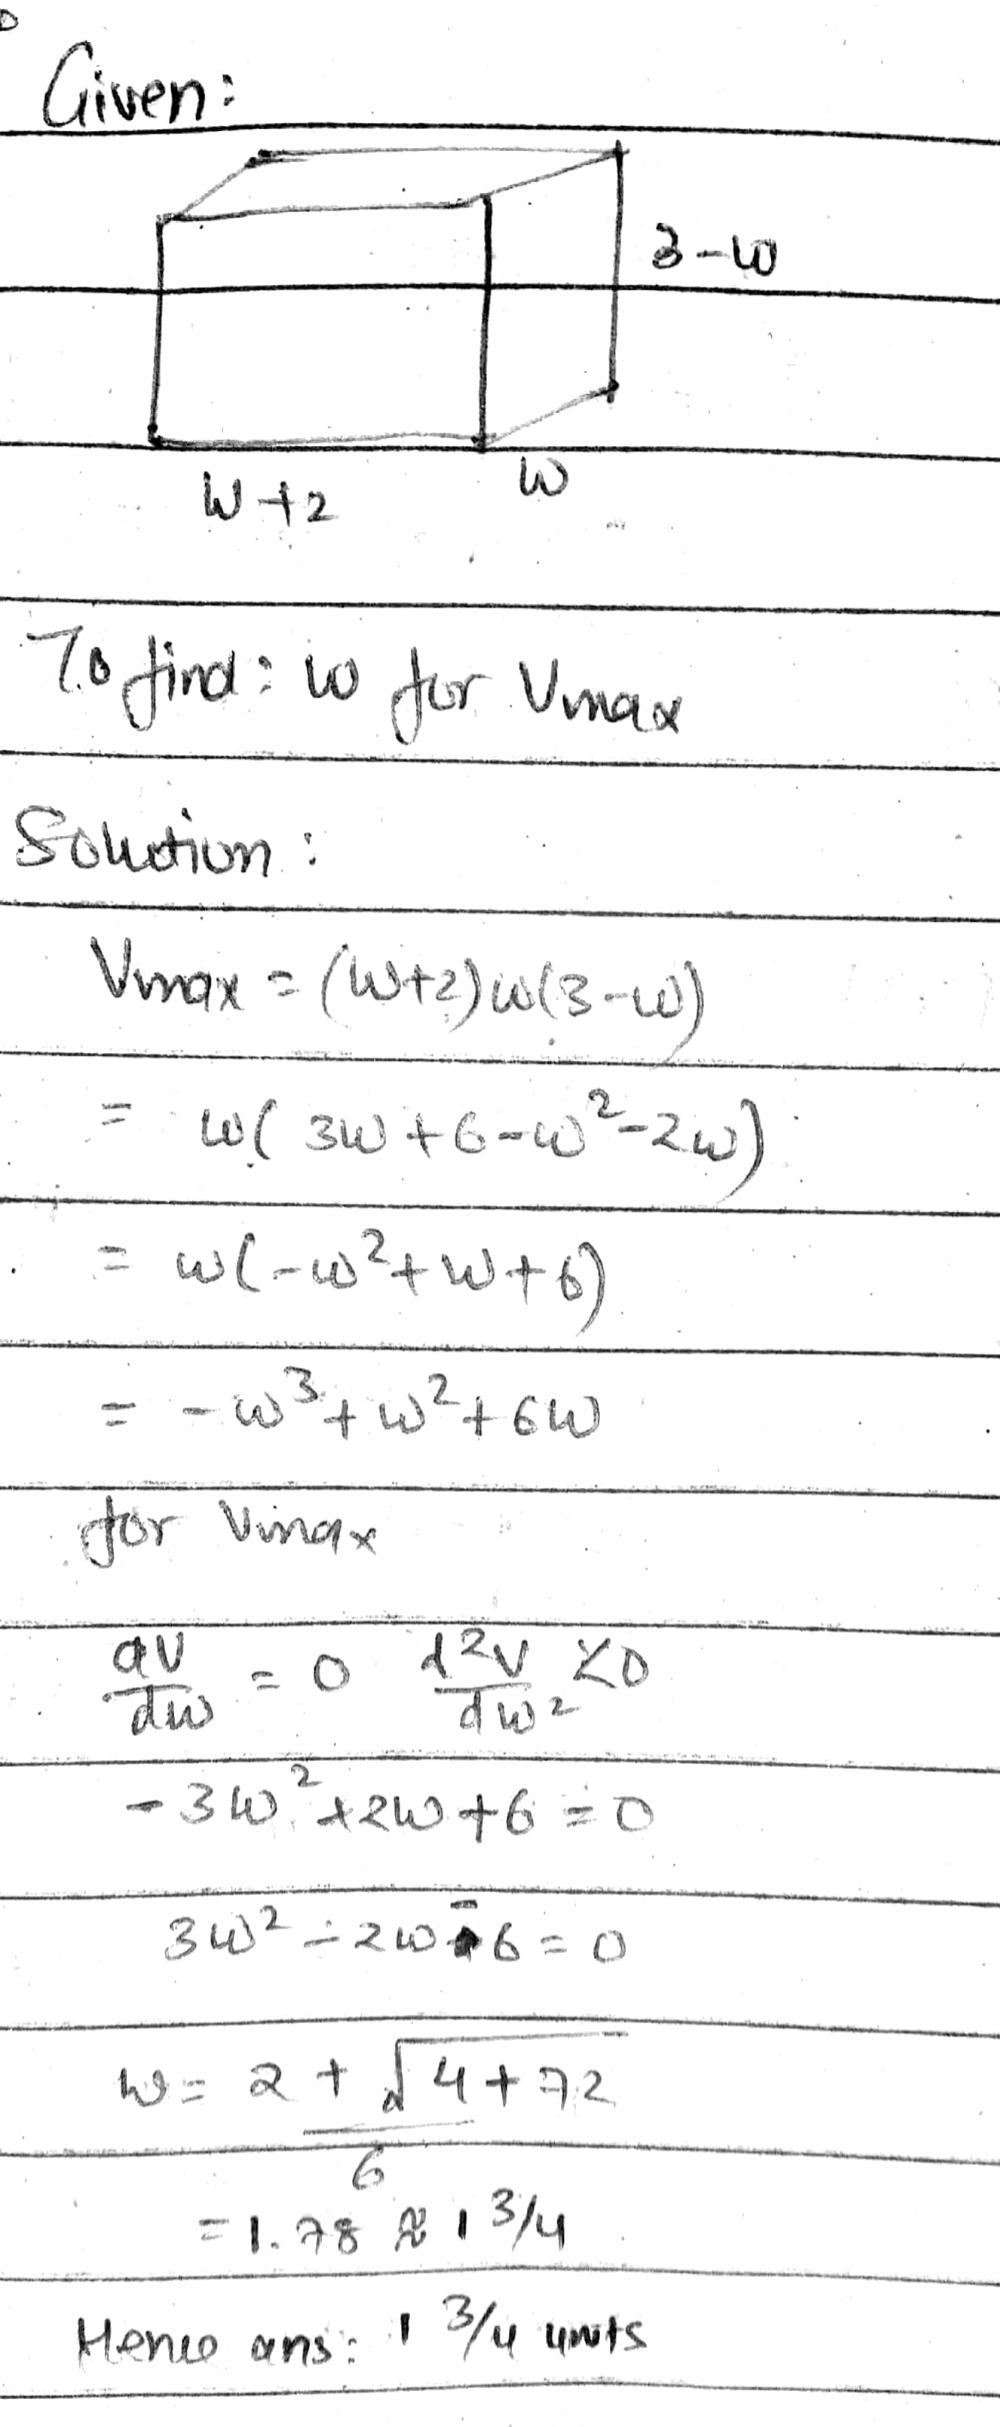 Given:
3-w
w+2
w
To find: w for Vmax
Solution:
Vmax = (w+2)w(3-w)
= w(3w+6-w²-2w)
= w(-w²+w+6)
= -w³+w²+6w
for Vmax
dv/dw = 0 d²v/dw² <0
-3w²+2w+6=0
3w²-2w-6=0
w= 2+√4+72
6
=1.78 ≈ 1 3/4
Hence ans: 1 3/4 units